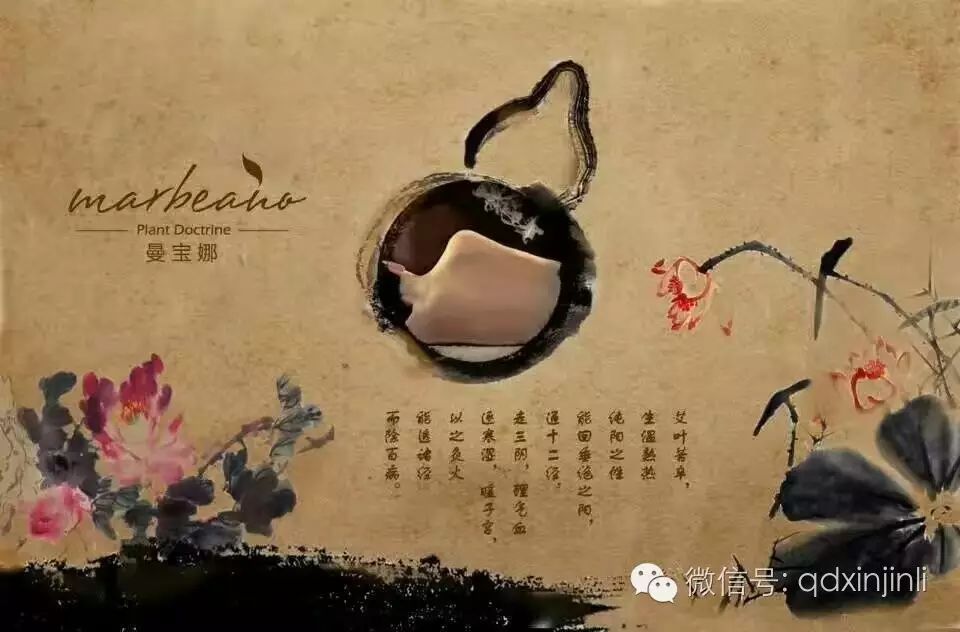 marbeano
Plant Doctrine
曼宝娜
艾叶苦辛，
生温熟热
纯阳之性
能回垂绝之阳，
通十二经，
走三阴，理气血
逐寒湿，暖子宫，
以之灸火
能透诸经
而除百病。
微信号: qdxinjinli